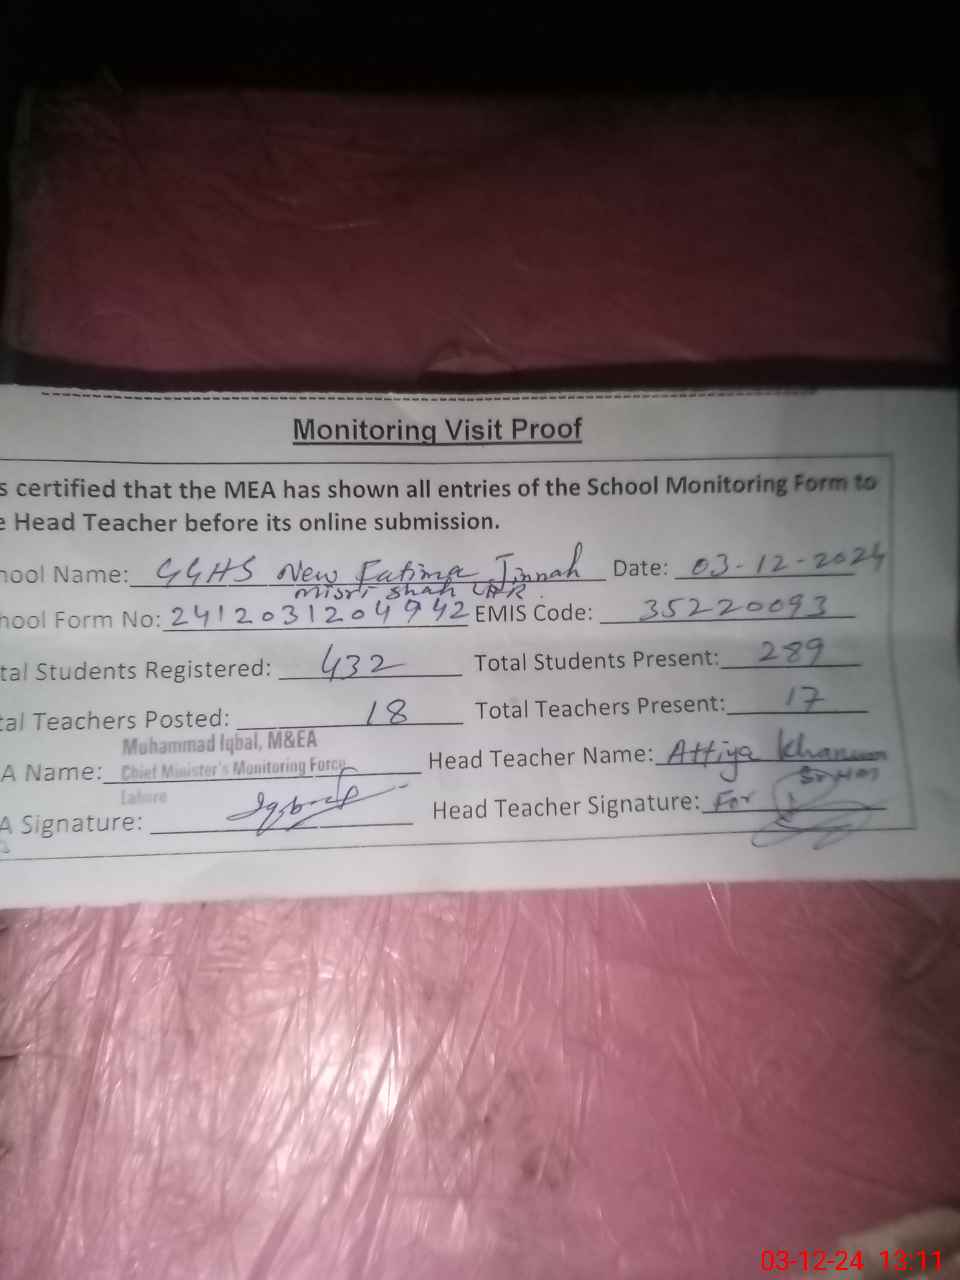 Monitoring Visit Proof
s certified that the MEA has shown all entries of the School Monitoring Form to
e Head Teacher before its online submission.
hool Name: GGHS New Fatima Jinnah Date: 03-12-2024
misri shah LHR.
hool Form No: 2412031204942 EMIS Code: 35220093
tal Students Registered: 432 Total Students Present: 289
tal Teachers Posted: 18 Total Teachers Present: 17
Muhammad Iqbal, M&EA
A Name: Chief Minister's Monitoring Force Head Teacher Name: Attiya Khanum
Lahore
A Signature: Head Teacher Signature: For
03-12-24 13:11